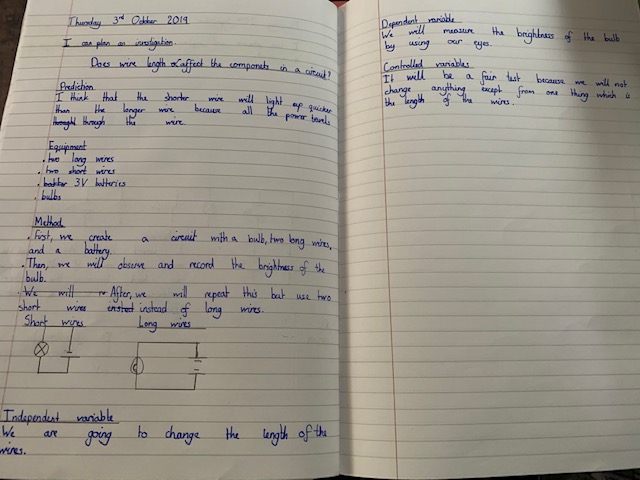 Thursday 3rd October 2019
I can plan an investigation.
Does wire length affect the componets in a circuit?
Prediction
I think that the shorter wire will light up quicker
than the longer wire because all the power travels
through the wire.
Equipment
. two long wires
. two short wires
. 3V batteries
. bulbs
Method
. First, we create a circuit with a bulb, two long wires,
and a battery.
. Then, we will observe and record the brightness of the
bulb.
. We will After, we will repeat this but use two
short wires instead of long wires.
Short wires Long wires
Independent variable
We are going to change the length of the
wires.
Dependent variable
We will measure the brightness of the bulb
by using our eyes.
Controlled variables.
It will be a fair test because we will not
change anything except from one thing which is
the length of the wires.